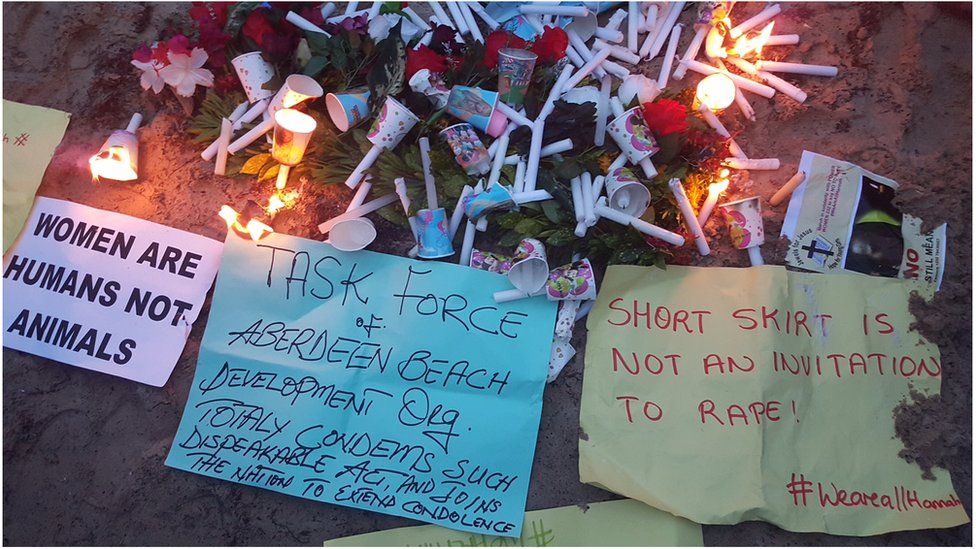 WOMEN ARE
HUMANS NOT
ANIMALS
TASK FORCE
OF
ABERDEEN BEACH
DEVELOPMENT Org.
TOTALY CONDEMS SUCH
DISPEAKABLE ACT, AND JOINS
THE NATION TO EXTEND CONDOLENCE
SHORT SKIRT IS
NOT AN INVITATION
TO RAPE!
#WeareallHannah
NO
STILL MEAN
#